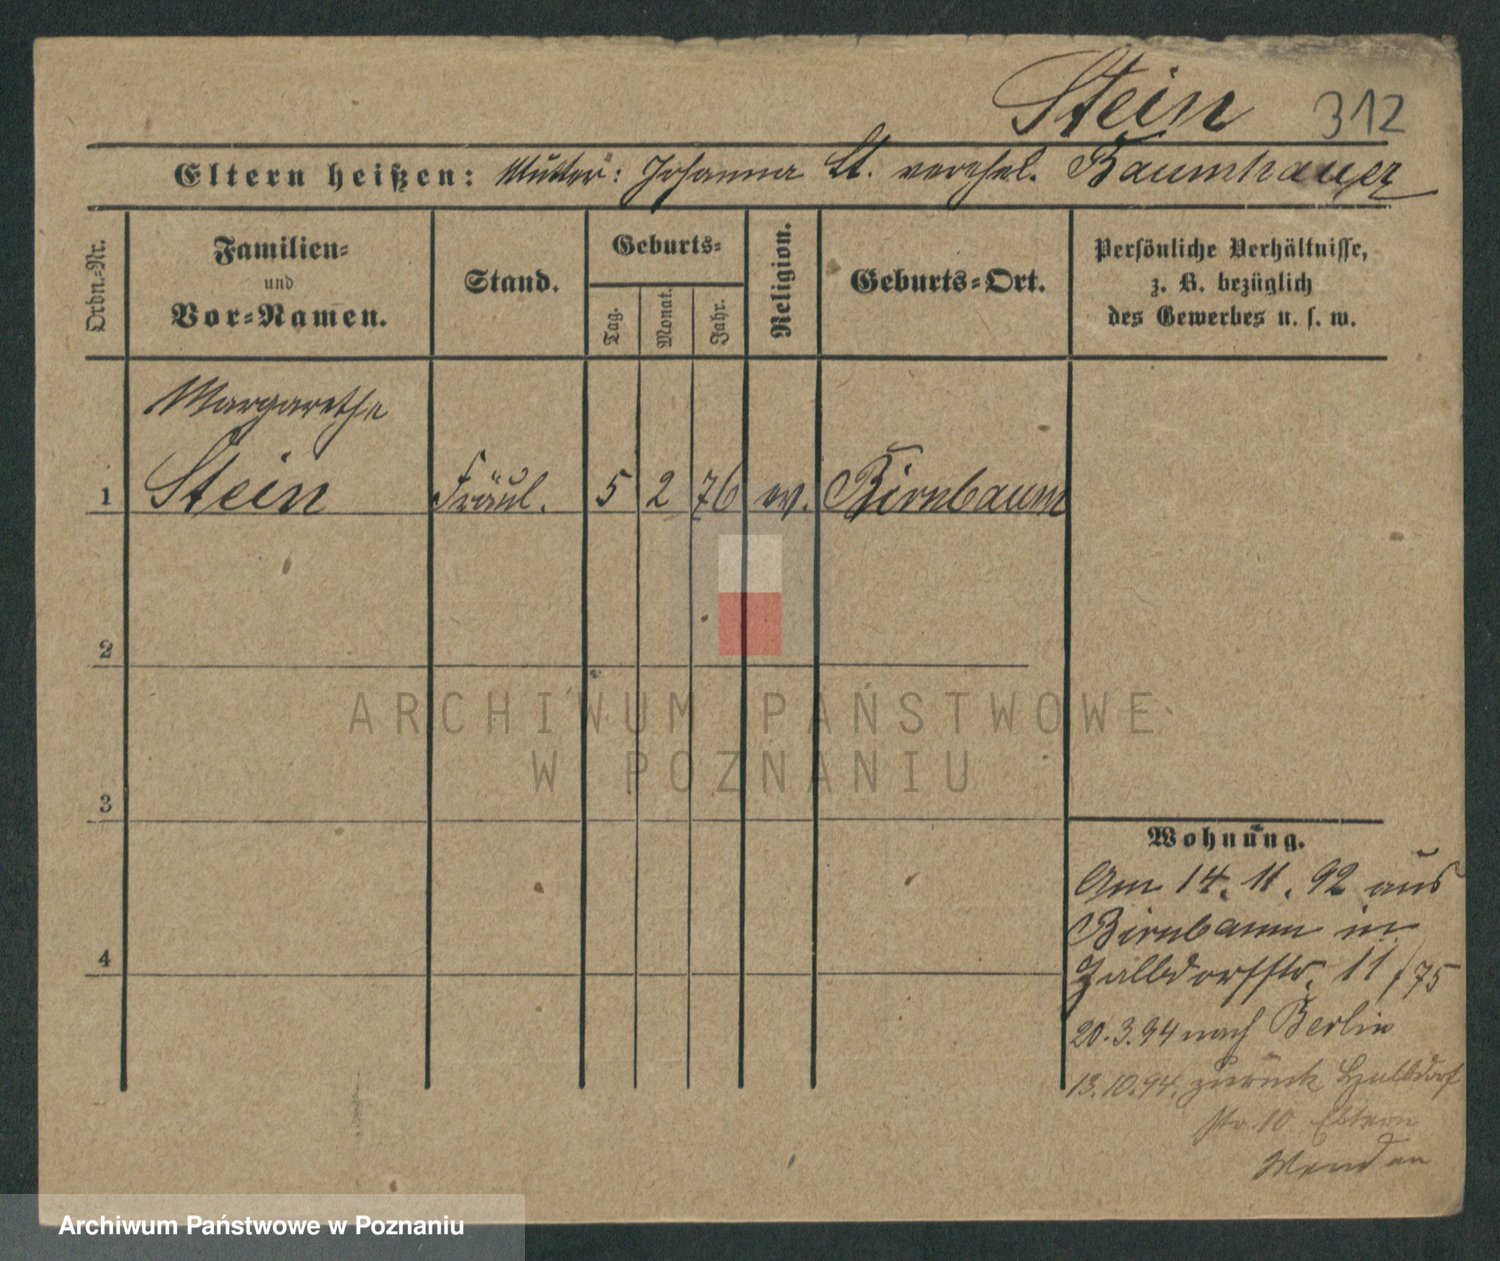 Stein 312
Eltern heißen: Mutter: Johanna St. verehel. Baumhauer
Ordn.-Nr.
Familien- und Vor-Namen.
Stand.
Geburts-
Tag.
Monat.
Jahr.
Religion.
Geburts-Ort.
Persönliche Verhältnisse,
z. B. bezüglich
des Gewerbes u. s. w.
Margarethe
1 Stein Fräul. 5 2 76 ev. Birnbaum
2
3
4
Wohnung.
Am 14. 11. 92 aus
Birnbaum in
Halbdorfstr. 11/75
20.3.94 nach Berlin
13.10.94. zurück Halbdorf
str. 10 Eltern
Wenden
ARCHIWUM PAŃSTWOWE
W POZNANIU
Archiwum Państwowe w Poznaniu